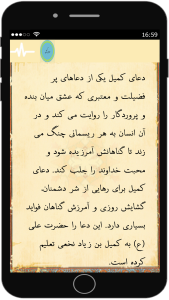 16:59
دعای کمیل یکی از دعاهای پر
فضیلت و معتبری که عشق میان بنده
و پروردگار را روایت می کند و در
آن انسان به هر ریسمانی چنگ می
زند تا گناهانش آمرزیده شود و
محبت خداوند را جلب کند. دعای
کمیل برای رهایی از شر دشمنان،
گشایش روزی و آمرزش گناهان فواید
بسیاری دارد. این دعا را حضرت علی
(ع) به کمیل بن زیاد نخعی تعلیم
کرده است.